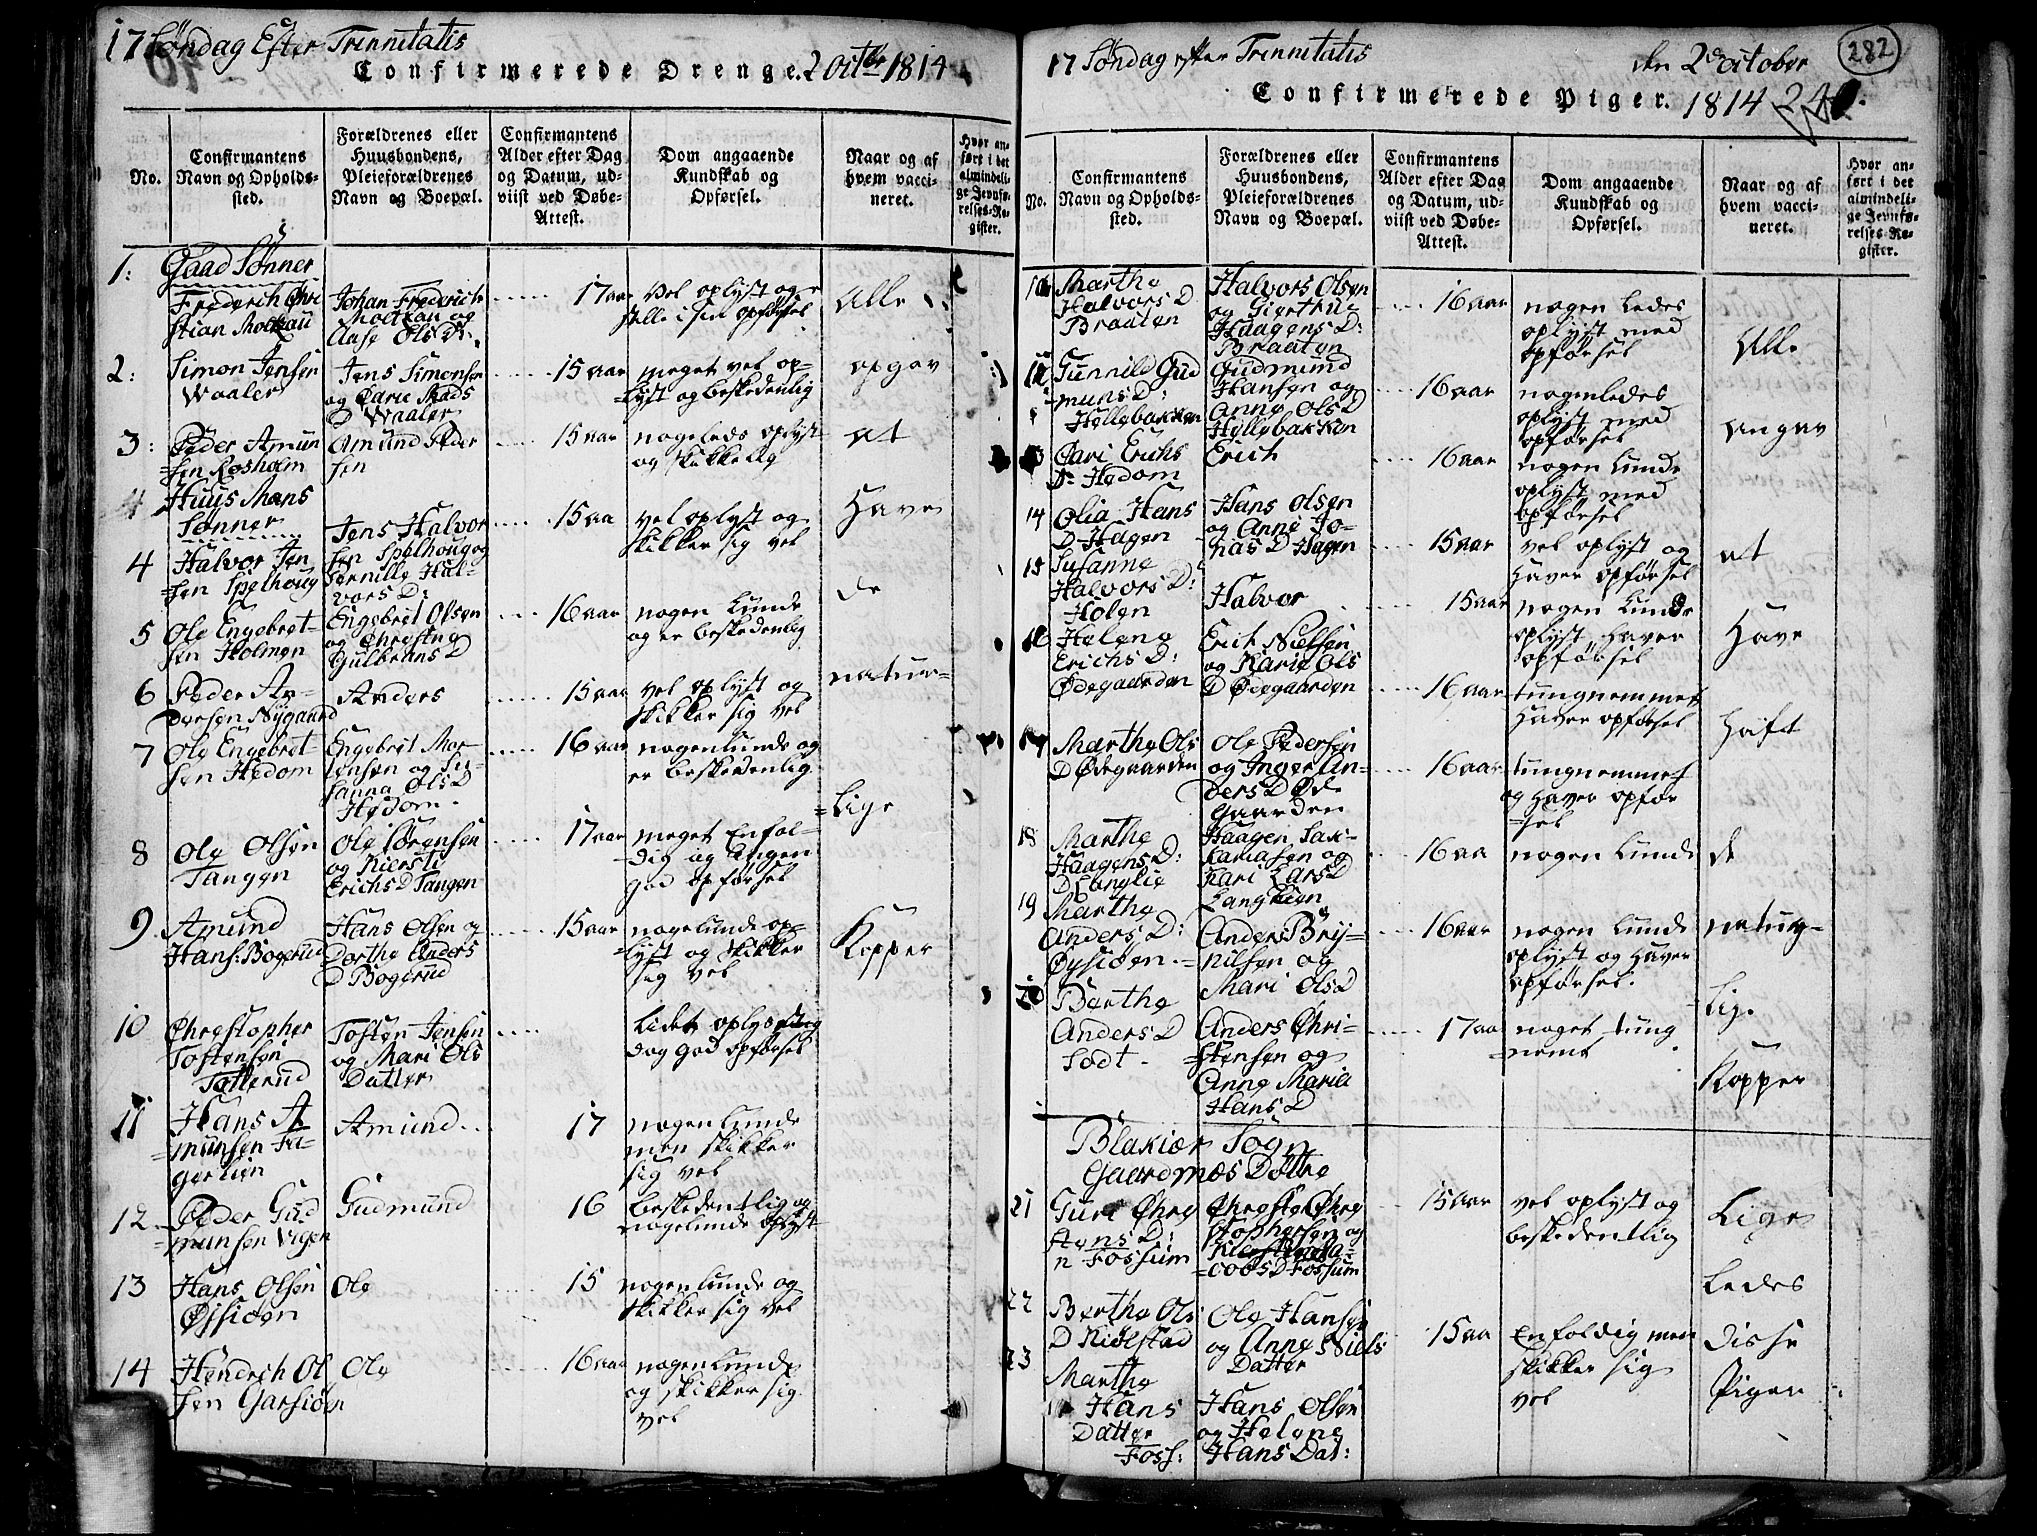 17 Søndag Efter Trinnitatis
Confirmerede Drenge. 2 Octbr 1814
No.
Confirmantens
Navn og Opholds-
sted.
Forældrenes eller
Huusbondens,
Pleieforældrenes
Navn og Boepæl.
Confirmantens
Alder efter Dag
og Datum, ud-
viist ved Døbe-
Attest.
Dom angaaende
Kundskab og
Opførsel.
Naar og af
hvem vacci-
neret.
Hvor an-
ført i det
almindeli-
ge Jevnfø-
relses-Re-
gister.
1:
Gaad Sønner
Frederich Chri
stian Moltzau
Johan Frederich
Moltzau og
Aase Ols D:
17 aar
Vel oplyst og
stille i sin opførsel
Alle
2:
Simon Jensen
Waaler
Jens Simensen
og Carie Mads
D Waaler
15 aar
meget vel op-
=lyst og beskedenlig
opgav
3:
Peder Amun
=sen Rosholm
Amund Peder
sen
15 aar
nogeleds oplyst
og skikkelig
at
4
Huus Mans
Sønner
4
Halvor Jen
=sen Spelhoug
Jens Halvor
sen Spelhoug og
Pernille Hal-
vors D:
15 aa
vel oplyst og
skikker sig vel
Have
de
5
Ole Engebret-
sen Holmen
Engebrit Olsen
og Christne
Gulbrans D
16 aar
nogen Lunde
og er beskedenlig
6
Peder An-
dersen Nygaard
Anders
15 aar
vel oplyst og
skikker sig vel
natuur=
7
Ole Engebret-
sen Hedom
Engebrit Mor-
tensen og Su-
sanna Ols D
Hedom.
16 aar
nogenlunde og
er beskedenlig
=lige
8
Ole Olsen
Tangen
Ole Sørensen
og Kiersti
Erichs D Tangen
17 aar
meget Enfol-
dig og Angen
god opførsel
9.
Amund
Hans: Bogerud
Hans Olsen og
Dorthe Anders
D Bogerud
15 aar
nogelunde op-
=lyst og skikker
sig vel
Kopper
10
Christopher
Tostensen
Tatterud
Tosten Jensen
og Mari Ols
Datter
Lidet oplyst
dog god opførsel
11
Hans A
=munsen Fa-
gerlien
Amund
17
nogen Lunde
men skikker
sig vel
12
Peder Gud
=munsen Vigen
Gudmund
16
beskedentlig og
nogelunde oplyst
13
Hans Olsen
Øisiøen
Ole
15
nogenlunde og
skikker sig vel
14
Hendrich Ol
sen Garsiøen
Ole
16 aar
nogen Lunde
og skikker sig
vel
17 Søndag efter Trinnitatis
den 2de October
282
Confirmerede Piger. 1814
No.
Confirmantens
Navn og Opholds-
sted.
Forældrenes eller
Huusbondens,
Pleieforældrenes
Navn og Boepæl.
Confirmantens
Alder efter Dag
og Datum, ud-
viist ved Døbe-
Attest.
Dom angaaende
Kundskab og
Opførsel.
Naar og af
hvem vacci-
neret.
Hvor an-
ført i det
almindeli-
ge Jevnfø-
relses Re-
gister.
Marthe
Halvors D
Braaten
Halvors Olsen
og Giertru
Haagens D:
Braaten
16 aar
nogen Ledes
oplyst med
opførsel
Alle
Gunnild Gud
muns D:
Hellebakken
Gudmund
Hansen og
Anne Ols D
Hellebakken
16 aar
nogenledes
oplyst med
opførsel
angav
Cari Erichs
D: Hedom
Erich
16 aar
nogen Lunde
oplyst med
opførsel
14
Olia Hans
D Hagen
Hans Olsen
og Anne Jo-
nas D Hagen
15 aar
vel oplyst og
haver opførsel
at
15
Susanne
Halvors D:
Holen
Halvor
15 aar
nogen Lunde
oplyst haver
opførsel
Have
16
Helene
Erichs D:
Ødegaarden
Erich Nielsen
og Karie Ols
D Ødegaarden
16 aar
tungnemmet
haver opførsel
Haft
17
Marthe Ols
D Ødegaarden
Ole Pedersen
og Inger An-
ders D Øde
gaarden
16 aar
tungnemmet
og haver opfør
=sel
18
Marthe
Haagens D:
Langlie
Haagen Sak-
kariasen og
Kari Lars D
Langlien
16 aa
nogen Lunde
de
19
Marthe
Anders D:
Øysiøen
Anders Bry-
nilsen og
Mari Ols D
16 aar
nogen Lunde
oplyst og haver
opførsel.
natuur-
lige
20
Berthe
Anders D
Sodt
Anders Chri-
=stensen og
Anne Maria
Hans D
17 aa
noget tung
=nemt
Kopper
Blakiær Sogn
Gaardmæs Døttre
21
Guri Chre
stens D:
n Fossum
Christe Chre
stophersen og
Kiersti Ja-
=cobs D Fossum
15 aar
vel oplyst og
beskedentlig
Lige
Ledes
22
Berthe Ols
D Nidestad
Ole Hansen
og Anne Niels
Datter
15 aa
Enfoldig men
skikker sig
vel
disse
Piger
23
Marthe
Hans
Datter
Foss:
Hans Olsen
og Helene
Hans Dat: